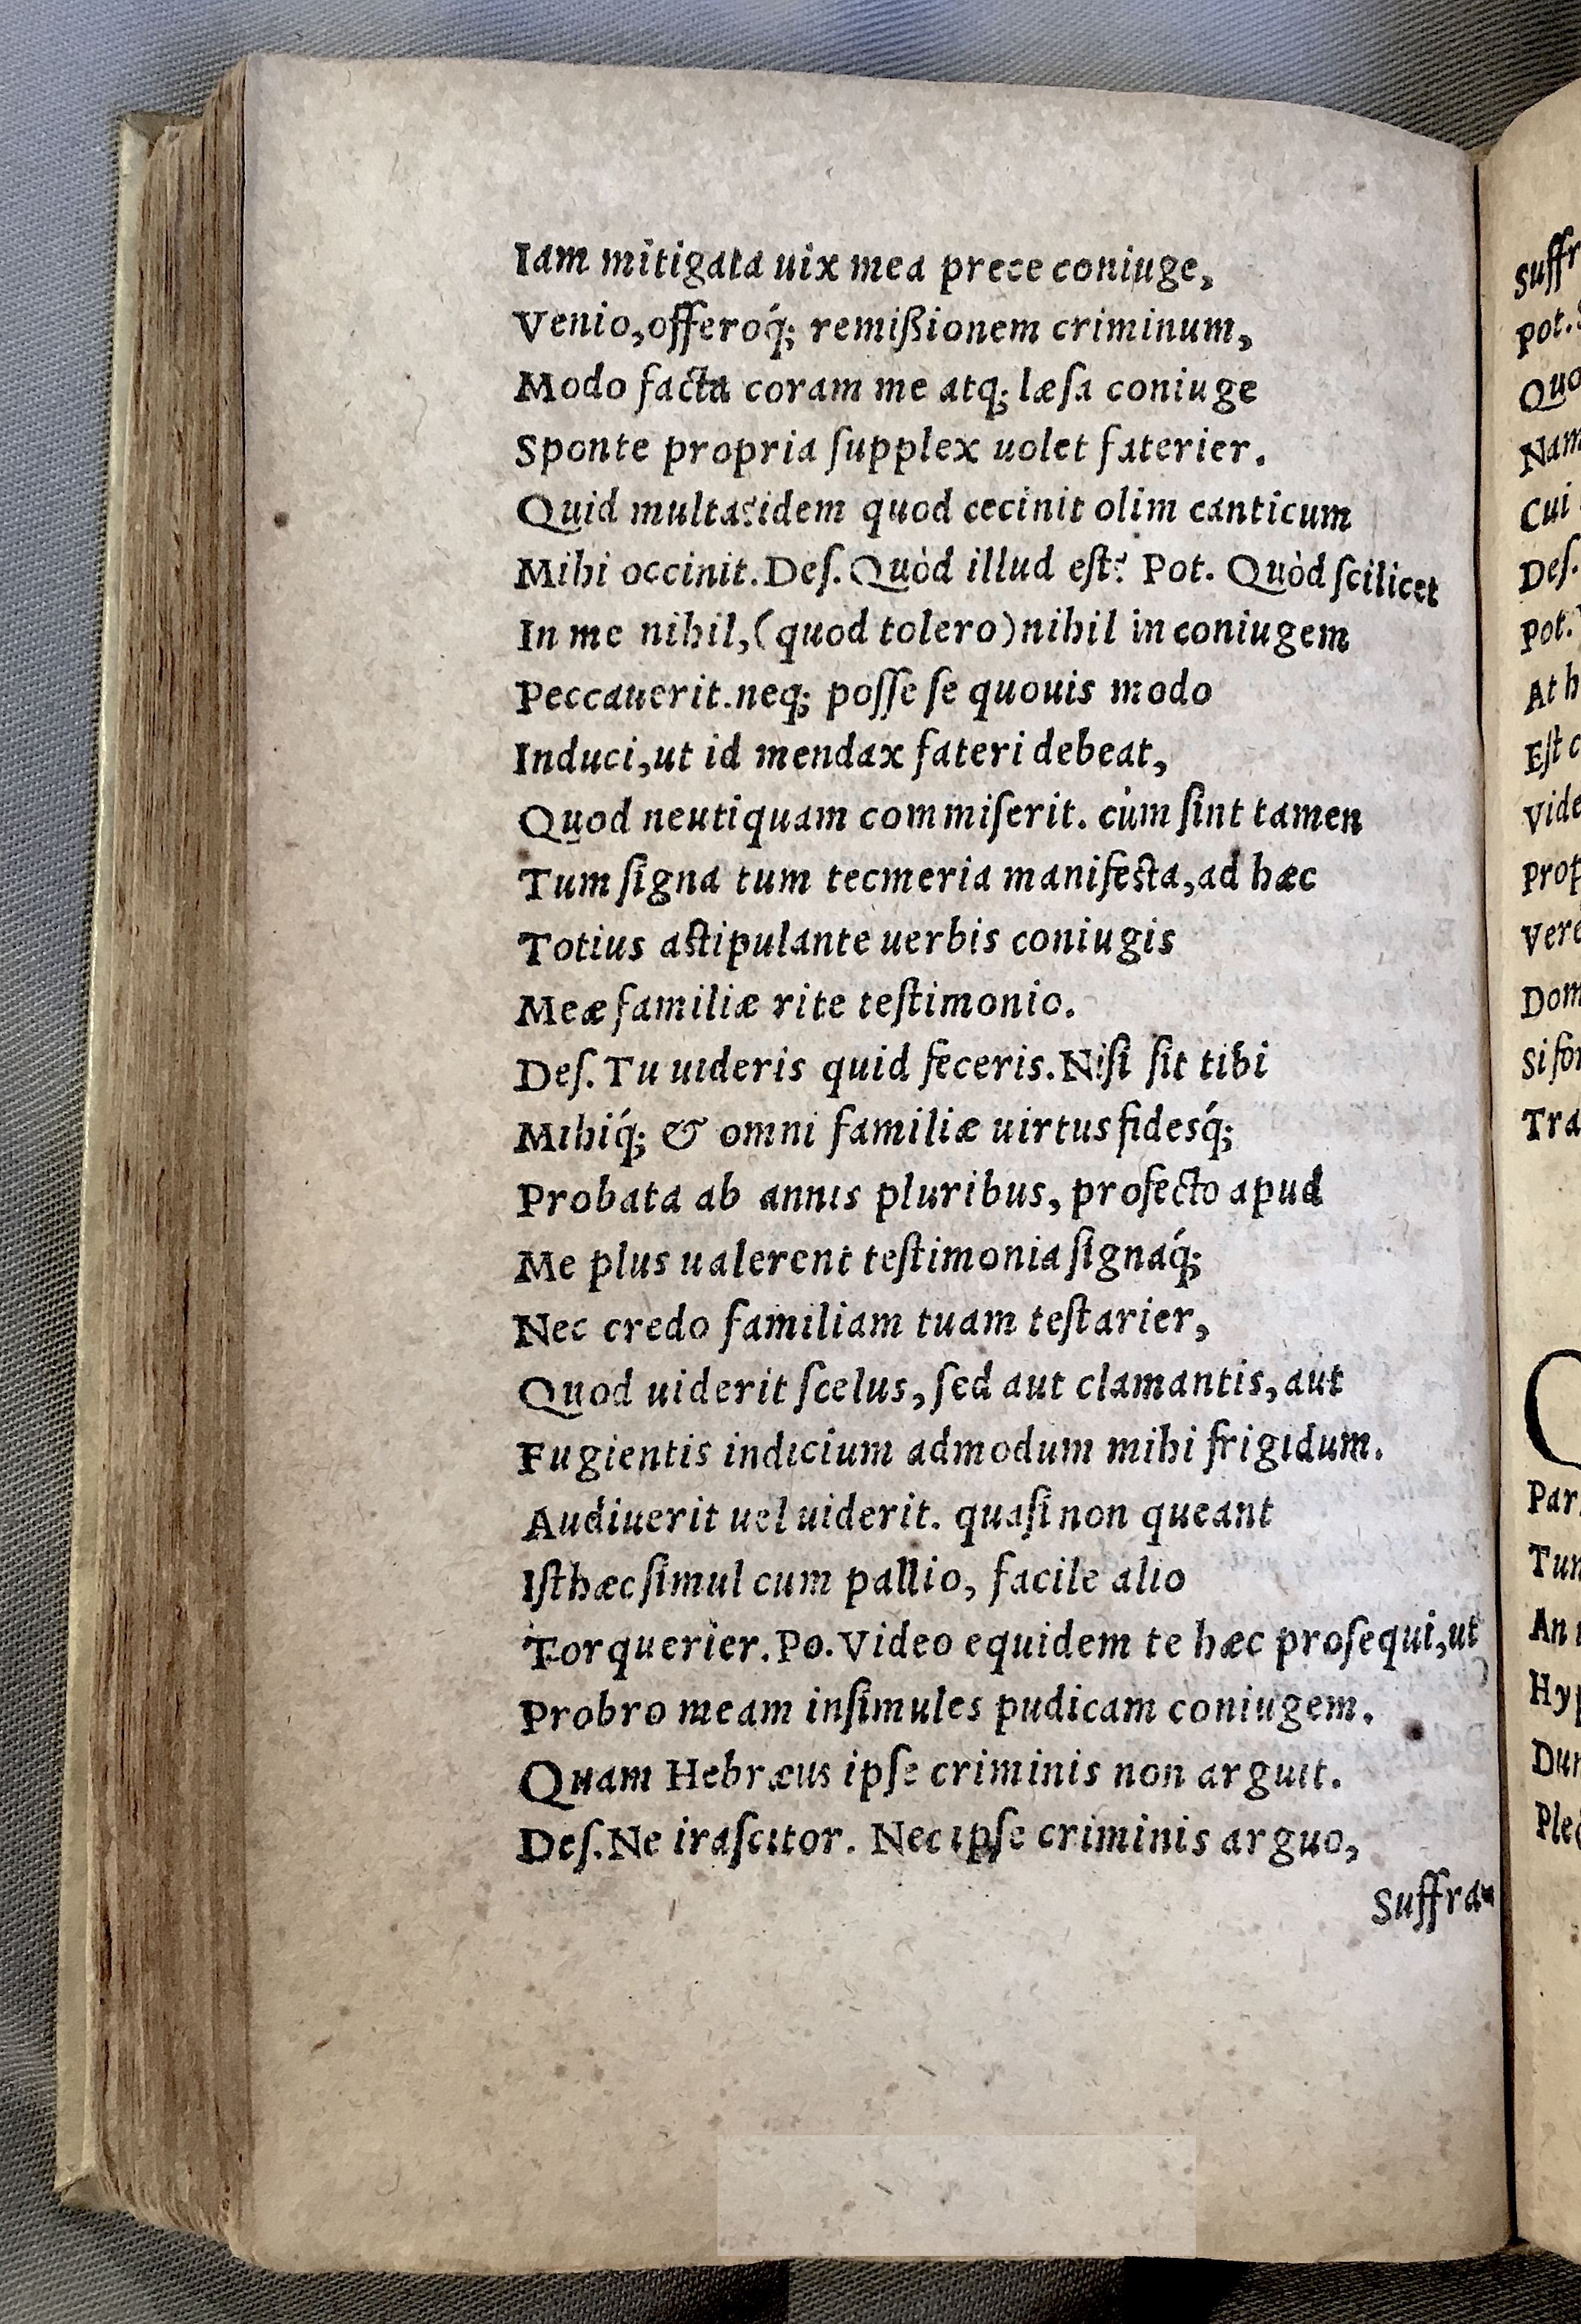 Iam mitigata uix mea prece coniuge,
Venio, offeroq́; remißionem criminum,
Modo facta coram me atq; læſa coniuge
Sponte propria ſupplex uolet faterier.
Quid multa? idem quod cecinit olim canticum
Mihi occinit. Deſ. Quòd illud eſt? Pot. Quòd ſcilicet
In me nihil, (quod tolero) nihil in coniugem
Peccauerit. neq; poſſe ſe quouis modo
Induci, ut id mendax fateri debeat,
Quod neutiquam commiſerit. cùm ſint tamen
Tum ſigna tum tecmeria manifeſta, ad hæc
Totius aſtipulante uerbis coniugis
Meæ familiæ rite teſtimonio.
Deſ. Tu uideris quid feceris. Niſi ſit tibi
Mihiq́; & omni familiæ uirtus fidesq́;
Probata ab annis pluribus, profecto apud
Me plus ualerent teſtimonia ſignaq́;
Nec credo familiam tuam teſtarier,
Quod uiderit ſcelus, ſed aut clamantis, aut
Fugientis indicium admodum mihi frigidum.
Audiuerit uel uiderit. quaſi non queant
Iſthæc ſimul cum pallio, facile alio
Torquerier. Po. Video equidem te hæc proſequi, ut
Probro meam inſimules pudicam coniugem.
Quam Hebræus ipſe criminis non arguit.
Deſ. Ne iraſcitor. Nec ipſe criminis arguo,
Suffra-
Suffr
Pot.
Quo
Nam
Cui
Deſ.
Pot.
At h
Eſt c
Vide
Prop
Vere
Dom
Si for
Tra
Par
Tun
An
Hyp
Dur